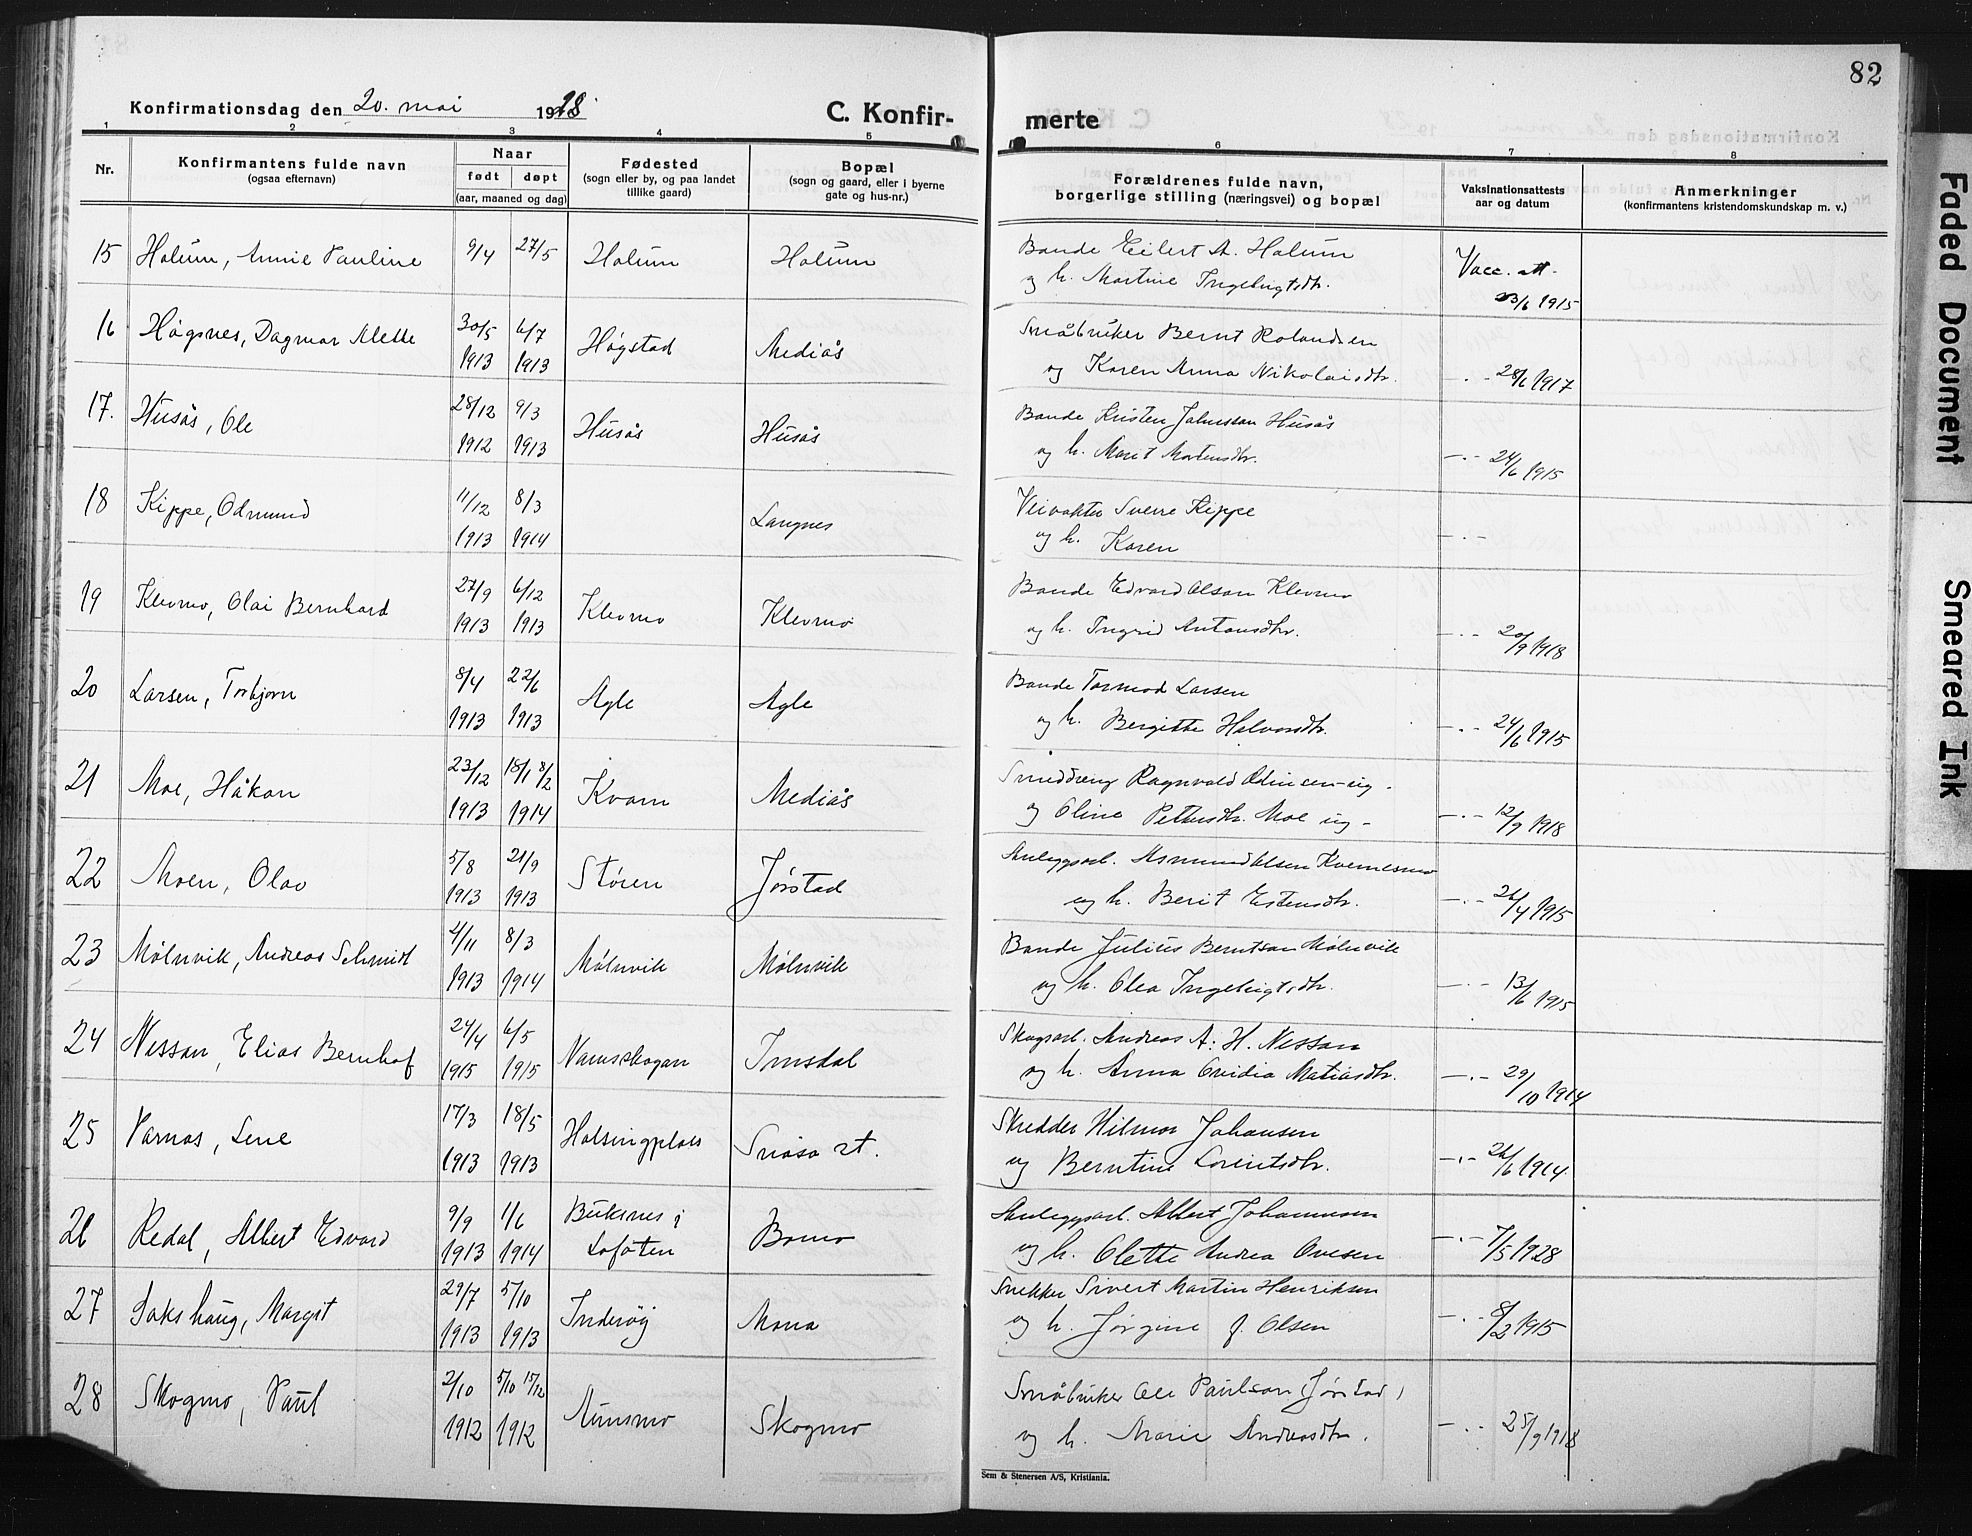 82
Konfirmationsdag den 20. mai 1928
C. Konfir-
merte
1 2 3 4 5 6 7 8
Nr.
Konfirmantens fulde navn
(ogsaa efternavn)
Naar
født døpt
(aar, maaned og dag)
Fødested
(sogn eller by, og paa landet
tillike gaard)
Bopæl
(sogn og gaard, eller i byerne
gate og hus-nr.)
Forældrenes fulde navn,
borgerlige stilling (næringsvei) og bopæl
Vaksinationsattests
aar og datum
Anmerkninger
(konfirmantens kristendomskundskap m. v.)
15 Halum, Annie Pauline 9/4 27/5 Halum Halum Bonde Eilert A. Halum Vacc. att.
og h. Martine Ingebrigtsdtr. 23/6 1915
16 Høgsnes, Dagmar Alette 30/5 6/7 Høgstad Mediås Småbruker Bernt Rolandsen
1913 1913 og Karen Anna Nikolaisdtr. -.- 28/6 1917
17. Husås, Ole 28/12 9/3 Husås Husås Bonde Kristen Johnsson Husås
1912 1913 og h. Maret Mortensdtr. -.- 24/6 1915
18 Kippe, Odmund 11/12 8/3 Langnes Veivokter Sverre Kippe
1913 1914 og h. Karen -.-
19 Klevmo, Olai Bernhard 27/9 6/12 Klevmo Klevmo Bonde Edvard Olsson Klevmo
1913 1913 og h. Ingrid Antonsdtr. -.- 20/9 1918
20 Larsen, Torbjørn 8/4 22/6 Agle Agle Bonde Tormod Larsen
1913 1913 og h. Bergitte Halvorsdtr. -.- 24/6 1915
21 Moe, Håkon 23/12 18/1 8/2 Kvam Mediås Smeddreng Ragnvald Odinsen ug.
1913 1914 og Oline Pettersdtr. Moe ug. -.- 12/9 1918
22 Moen, Olav 5/8 21/9 Støren Jørstad Anleggsarb. Asmund Olsen Kvernesmo
1913 1913 og h. Berit Estensdtr. -.- 26/4 1915
23 Mølnvik, Andreas Schmidt 4/11 8/3 Mølnvik Mølnvik Bonde Julius Berntsen Mølnvik
1913 1914 og h. Olea Ingebrigtsdtr. -.- 13/6 1915
24 Nessan, Elias Bernhof 24/4 6/5 Namsskogan Imsdal Skogsarb. Andreas A. H. Nessan
1915 1915 og h. Anna Ovidia Matiasdtr. -.- 29/10 1914
25 Parnas, Lene 17/3 18/5 Halsingplass Snåsa st. Skredder Hilmar Johansen
1913 1913 og Berntine Lorentsdtr. -.- 26/6 1914
26 Redal, Albert Edvard 9/9 1/6 Buksnes i Bomo Anleggsarb. Albert Johannesen
1913 1914 Lofoten og h. Olette Andrea Ovesen -.- 7/5 1928
27 Sakshaug, Margit 29/7 5/10 Inderøy Mona Snekker Sivert Martin Henriksen
1913 1913 og h. Jørgine f. Olsen -.- 8/2 1915
28 Skogmo, Paul 2/10 5/10 15/12 Aunsmo Skogmo Småbruker Ole Paulson (Jørstad)
1912 1912 og h. Marie Andreasdtr. -.- 25/9 1918
Sem & Stenersen A/S, Kristiania.
Faded Document
Smeared Ink